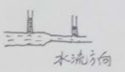 水流方向